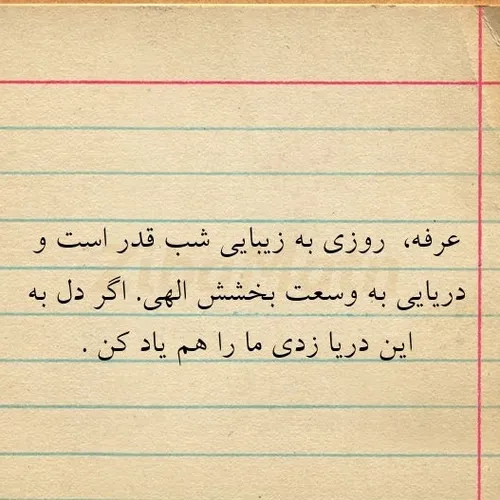 عرفه، روزی به زیبایی شب قدر است و
دریایی به وسعت بخشش الهی. اگر دل به
این دریا زدی ما را هم یاد کن .